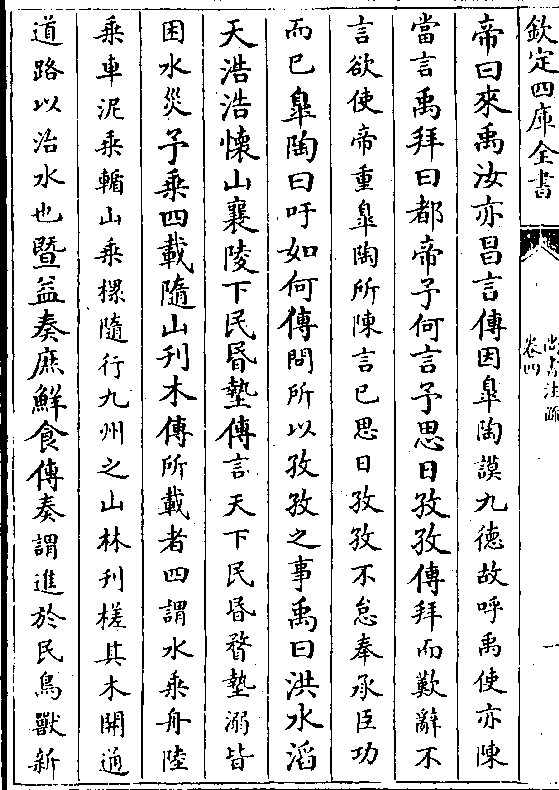 欽定四庫全書
尚書注疏
卷四
一
帝曰來禹汝亦昌言傳因臯陶謨九德故呼禹使亦陳
當言禹拜曰都帝予何言予思日孜孜傳拜而歎辭不
言欲使帝重臯陶所陳言已思日孜孜不怠奉承臣功
而已臯陶曰吁如何傳問所以孜孜之事禹曰洪水滔
天浩浩懷山襄陵下民昏墊傳言天下民昏瞀墊溺皆
困水災予乘四載隨山刋木傳所載者四謂水乘舟陸
乘車泥乘輴山乘樏隨行九州之山林刋槎其木開通
道路以治水也暨益奏庶鮮食傳奏謂進於民鳥獸新